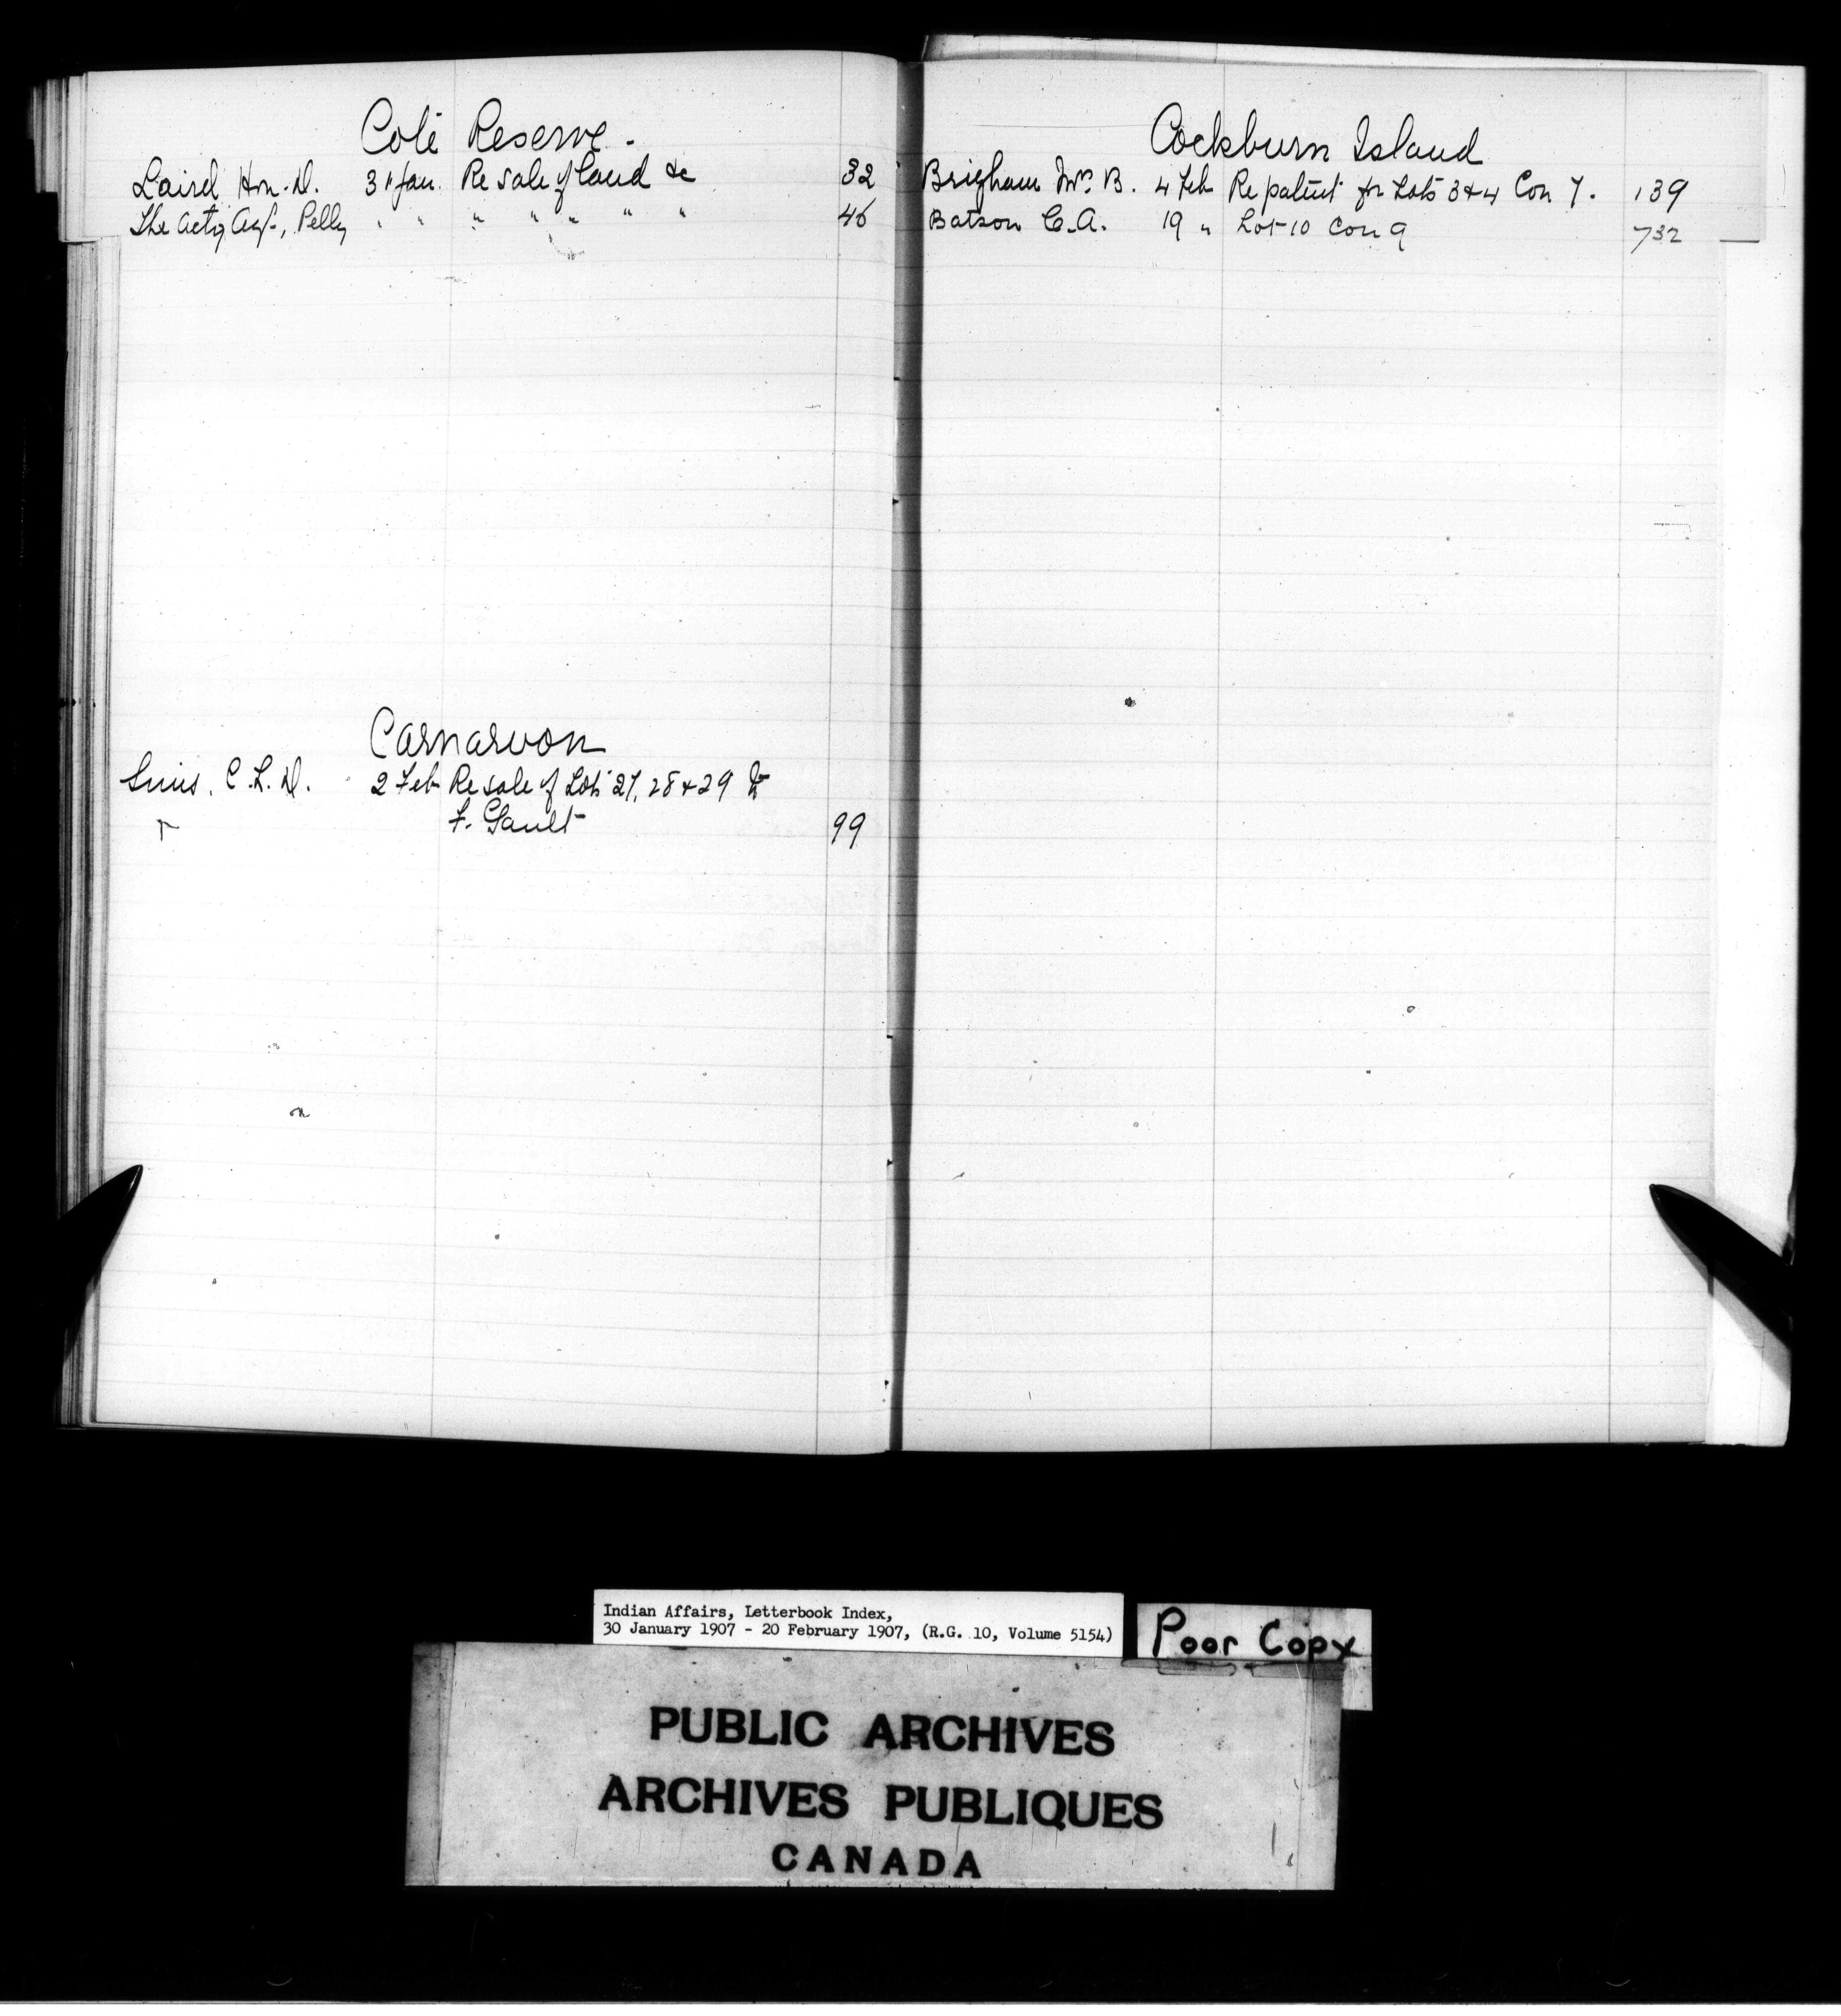 Coté Reserve.
Laird Hon. D. 31 Jan. Re sale of land &c 32
The Actg Agt., Pelly " " " " " " " 46
Carnarvon
Sims. C. L. D. 2 Feb Re sale of Lots 27, 28 & 29 to
F. Gault 99
Cockburn Island
Brigham Wm. B. 4 Feb Re patent for Lots 3 & 4 Con 7. 139
Batson C. A. 19 " Lot 10 Con 9 732
Indian Affairs, Letterbook Index,
30 January 1907 - 20 February 1907, (R.G. 10, Volume 5154)
Poor Copy
PUBLIC ARCHIVES
ARCHIVES PUBLIQUES
CANADA